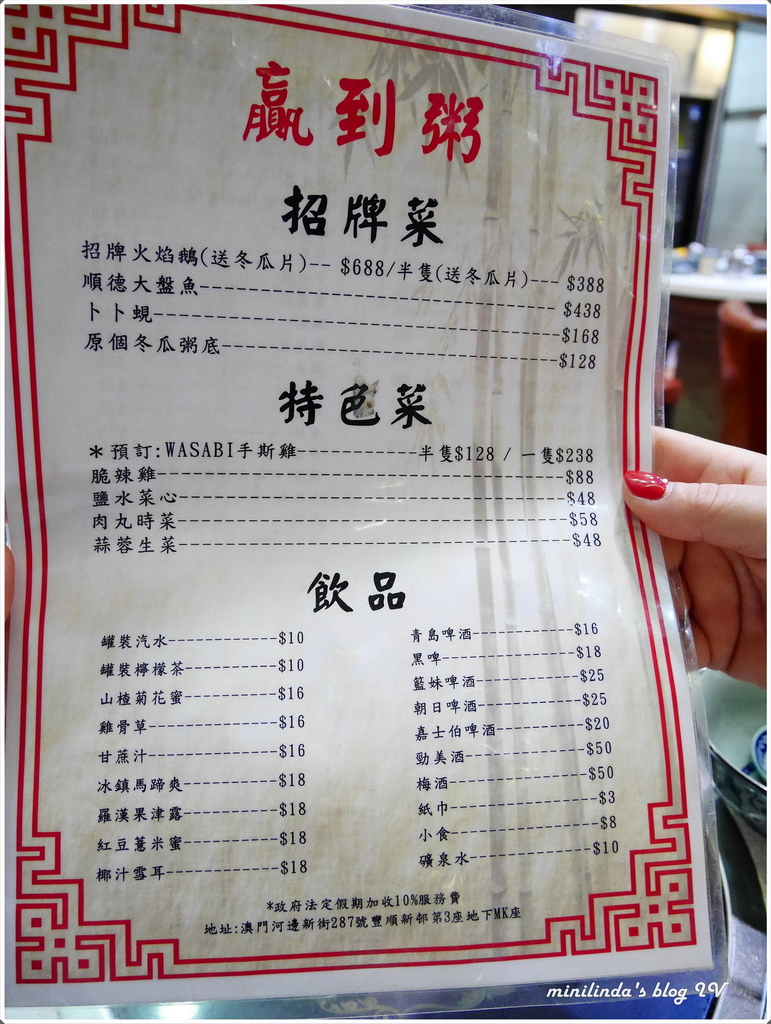 贏到粥
招牌菜
招牌火焰鵝(送冬瓜片)-- $688/半隻(送冬瓜片)--- $388
順德大盤魚------------------------------$438
卜卜蜆------------------------------$168
原個冬瓜粥底------------------------------$128
特色菜
*預訂:WASABI手斯雞------------半隻$128 / 一隻$238
脆辣雞------------------------------$88
鹽水菜心------------------------------$48
肉丸時菜------------------------------$58
蒜蓉生菜------------------------------$48
飲品
罐裝汽水------------$10
罐裝檸檬茶----------$10
山楂菊花蜜----------$16
雞骨草--------------$16
甘蔗汁--------------$16
冰鎮馬蹄爽----------$18
羅漢果津露----------$18
紅豆薏米蜜----------$18
椰汁雪耳------------$18
青島啤酒----------$16
黑啤--------------$18
籃妹啤酒----------$25
朝日啤酒----------$25
嘉士伯啤酒--------$20
勁美酒------------$50
梅酒--------------$50
紙巾--------------$3
小食--------------$8
礦泉水------------$10
*政府法定假期加收10%服務費
地址:澳門河邊新街287號豐順新邨第3座地下MK座
minilinda's blog IV